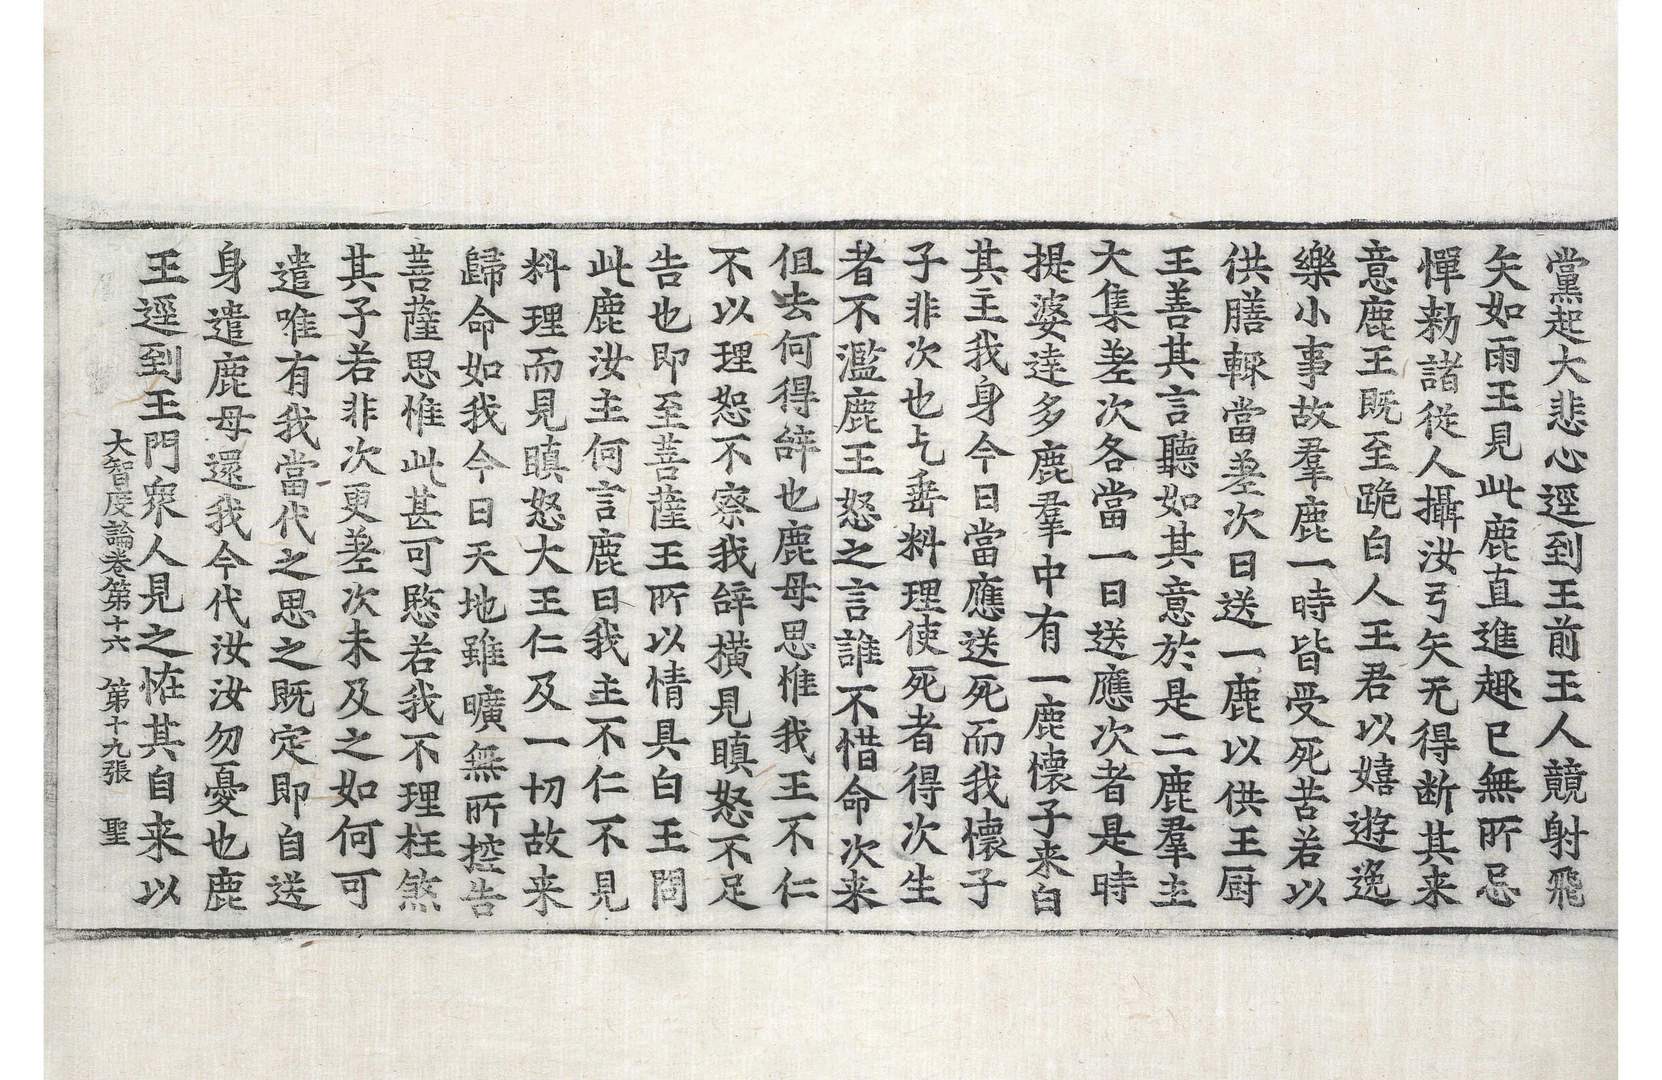 黨起大悲心逕到王前王人競射飛
矢如雨王見此鹿直進趣已無所忌
憚勑諸從人攝汝弓矢无得断其来
意鹿王既至跪白人王君以嬉遊逸
樂小事故羣鹿一時皆受死苦若以
供膳輙當差次日送一鹿以供王厨
王善其言聽如其意於是二鹿羣主
大集差次各當一日送應次者是時
提婆達多鹿羣中有一鹿懷子来白
其主我身今日當應送死而我懷子
子非次也乞垂料理使死者得次生
者不濫鹿王怒之言誰不惜命次来
但去何得辝也鹿母思惟我王不仁
不以理恕不察我辝横見瞋怒不足
告也即至菩薩王所以情具白王問
此鹿汝主何言鹿曰我主不仁不見
料理而見瞋怒大王仁及一切故来
歸命如我今日天地雖曠無所控告
菩薩思惟此甚可愍若我不理枉煞
其子若非次更差次未及之如何可
遣唯有我當代之思之既定即自送
身遣鹿母還我今代汝汝勿憂也鹿
王逕到王門衆人見之恠其自来以
大智度論卷第十六 第十九張 聖